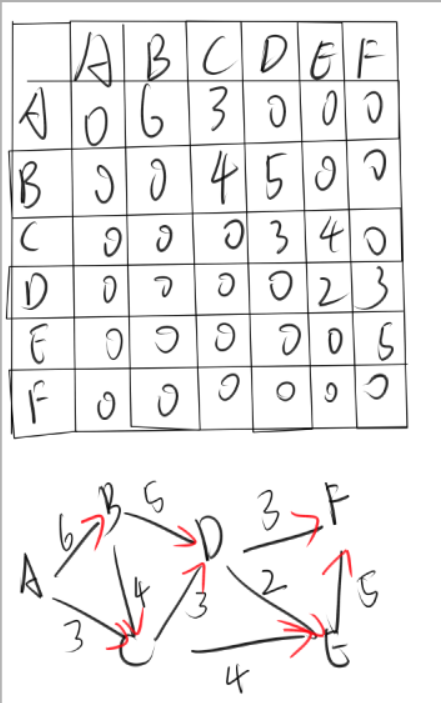 A B C D E F
A 0 6 3 0 0 0
B 0 0 4 5 0 0
C 0 0 0 3 4 0
D 0 0 0 0 2 3
E 0 0 0 0 0 5
F 0 0 0 0 0 0
B 5 3 F
6 D
A 4 2 5
3 3
C E
4